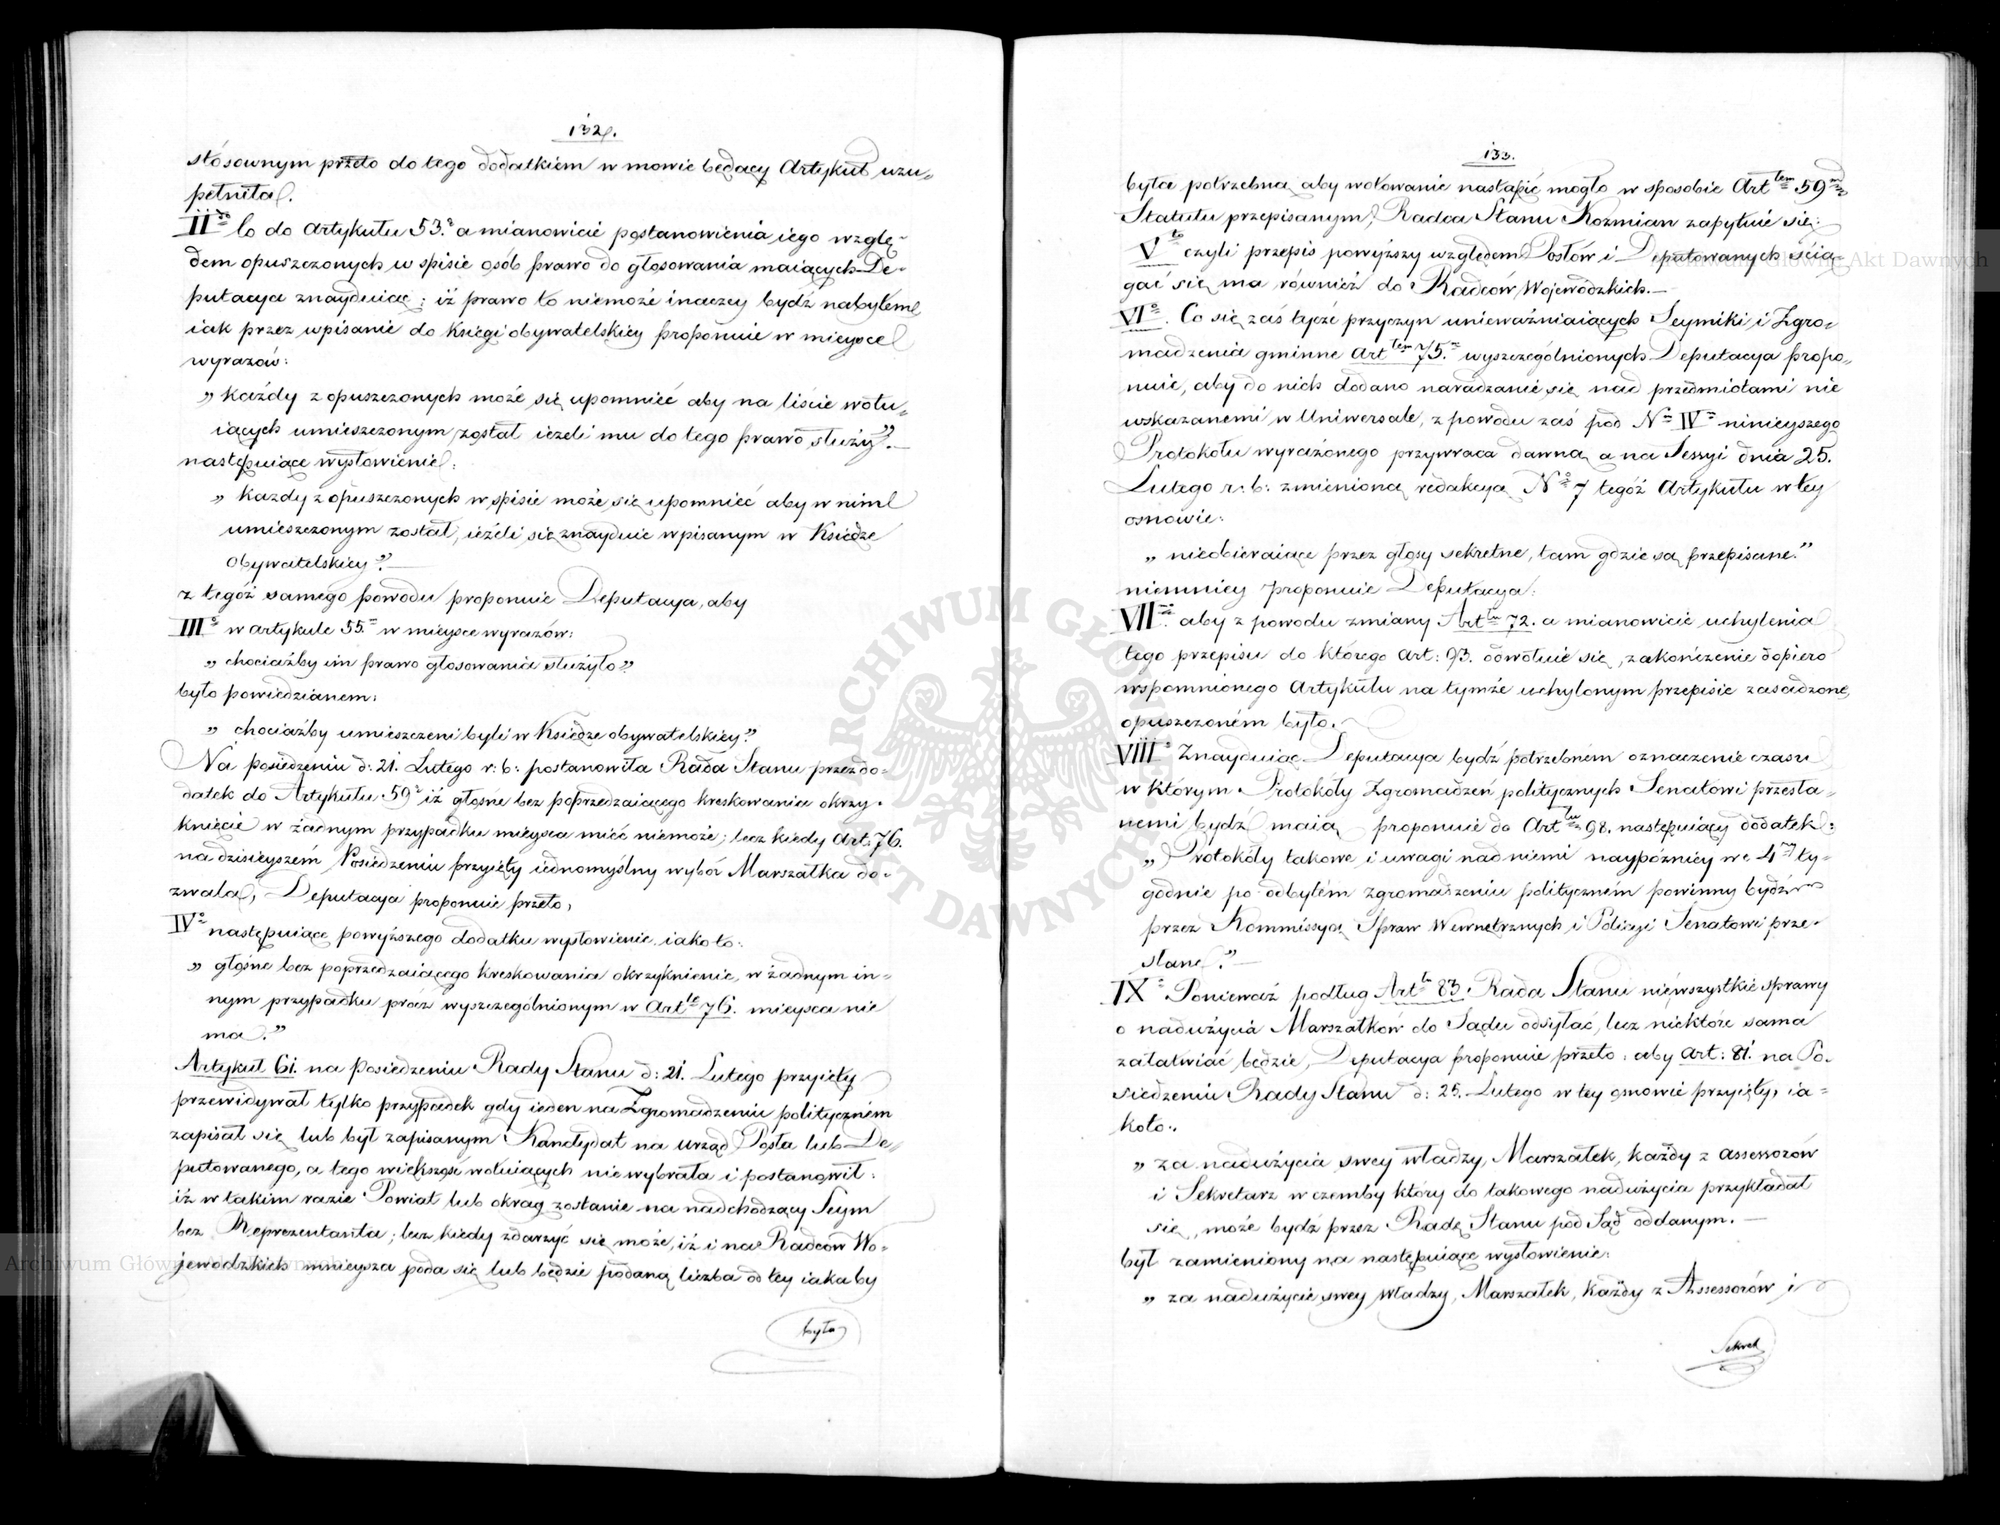 132.
stósownym przeto do tego dodatkiem w mowie będący Artykuł uzu-
pełniła.
II<sup>do</sup> Co do Artykułu 53.° a mianowicie postanowienia iego wzglę-
dem opuszczonych w spisie osób prawo do głosowania maiących De-
putacya znayduiąc; iż prawo to niemoże inaczey bydź nabytem
iak przez wpisanie do Księgi obywatelskiey proponuie w mieysce
wyrazów:
„ każdy z opuszczonych może się upomnieć aby na liście wotu-
iących umieszczonym został ieżeli mu do tego prawo służy”.—
następuiące wysłowienie:
„ każdy z opuszczonych w spisie może się upomnieć aby w nim
umieszczonym został, ieżeli się znayduie wpisanym w Księdze
Obywatelskiey”.—
z tegóż samego powodu proponuie Deputacya, aby
III° w artykule 55.<sup>m</sup> w mieysce wyrazów:
„ chociażby im prawo głosowania służyło”
było powiedzianem:
„ chociażby umieszczeni byli w Księdze obywatelskiey”
Na Posiedzeniu d: 21. Lutego r: b: postanowiła Rada Stanu przez do-
datek do Artykułu 59° iż głośne bez poprzedzaiącego kreskowania okrzy-
knięcie w żadnym przypadku mieysca mieć niemoże; lecz kiedy Art: 76.
na dzisieyszém Posiedzeniu przyięty iednomyślny wybór Marszałka do-
zwala, Deputacya proponuie przeto,
IV° następuiące powyższego dodatku wysłowienie. iako to:
„ głośne bez poprzedzaiącego kreskowania okrzyknienie, w żadnym in-
nym przypadku prócz wyszczególnionym w Art<sup>le</sup> 76. mieysca nie
ma.”
Artykuł 61. na Posiedzeniu Rady Stanu d: 21. Lutego przyięty
przewidywał tylko przypadek gdy ieden na Zgromadzeniu polityczném
zapisał się lub był zapisanym Kandydat na urząd Posła lub De-
putowanego, a tego większość wotuiących nie wybrała i postanowił:
iż w takim razie Powiat lub okrąg zostanie na nadchodzący Seym
bez Reprezentanta; lecz kiedy zdarzyć się może, iż i na Radców Wo-
jewódzkich mnieysza poda się lub będzie podaną liczba od tey iaka by
była
133.
była potrzebna aby wotowanie nastąpić mogło w sposobie Art<sup>tem</sup> 59<sup>m</sup>
Statutu przepisanym, Radca Stanu Kozmian zapytuie się:
V<sup>to</sup> czyli przepis powyższy względem Posłów i Deputowanych ścią-
gać się ma również do Radców Wojewódzkich.—
VI° Co się zaś tycze przyczyn unieważniaiących Seymiki i Zgro-
madzenia gminne Art<sup>tem</sup> 75.<sup>m</sup> wyszczególnionych Deputacya propo-
nuie, aby do nich dodano naradzanie się nad przedmiotami nie
wskazanemi w Uniwersale, z powodu zaś pod N° IV° ninieyszego
Protokołu wyrażonego przywraca dawną a na Sessyi dnia 25.
Lutego r: b: zmienioną redakcyą N° 7 tegóż Artykułu w tey
osnowie:
„ nieobieraiące przez głosy sekretne, tam gdzie są przepisane.”
niemniey proponuie Deputacya:
VII<sup>mo</sup>. aby z powodu zmiany Art<sup>łu</sup> 72. a mianowicie uchylenia
tego przepisu do którego Art: 93. odwołuie się, zakończenie dopiero
wspomnionego Artykułu na tymże uchylonym przepisie zasadzone,
opuszczoném było.
VIII° Znayduiąc Deputacya bydź potrzebném oznaczenie czasu
w którym Protokóły Zgromadzeń politycznych Senatowi przesła-
nemi bydź maią proponuie do Art<sup>łu</sup> 98. następuiący dodatek:
„ Protokóły takowe i uwagi nad niemi naypózniey we 4<sup>ry</sup> ty-
godnie po odbytém zgromadzeniu polityczném powinny bydź
przez Kommissyą Spraw Wewnętrznych i Policyi Senatowi prze-
słane.”—
IX° Ponieważ podług Art<sup>łu</sup> 83. Rada Stanu niewszystkie sprawy
o nadużycia Marszałków do Sądu odsyłać, lecz niektóre sama
załatwiać będzie, Deputacya proponuie przeto: aby Art: 81. na Po-
siedzeniu Rady Stanu d: 25. Lutego w tey osnowie przyięty, ia-
ko to:
„ za nadużycia swey władzy, Marszałek, każdy z assessorów
i Sekretarz w czemby który do takowego nadużycia przykładał
się, może bydź przez Radę Stanu pod Sąd oddanym.—
był zamieniony na następuiące wysłowienie:
„ za nadużycie swey władzy, Marszałek, każdy z Assessorów i
Sekret
ARCHIWUM GŁÓWNE AKT DAWNYCH
Archiwum Główne Akt Dawnych